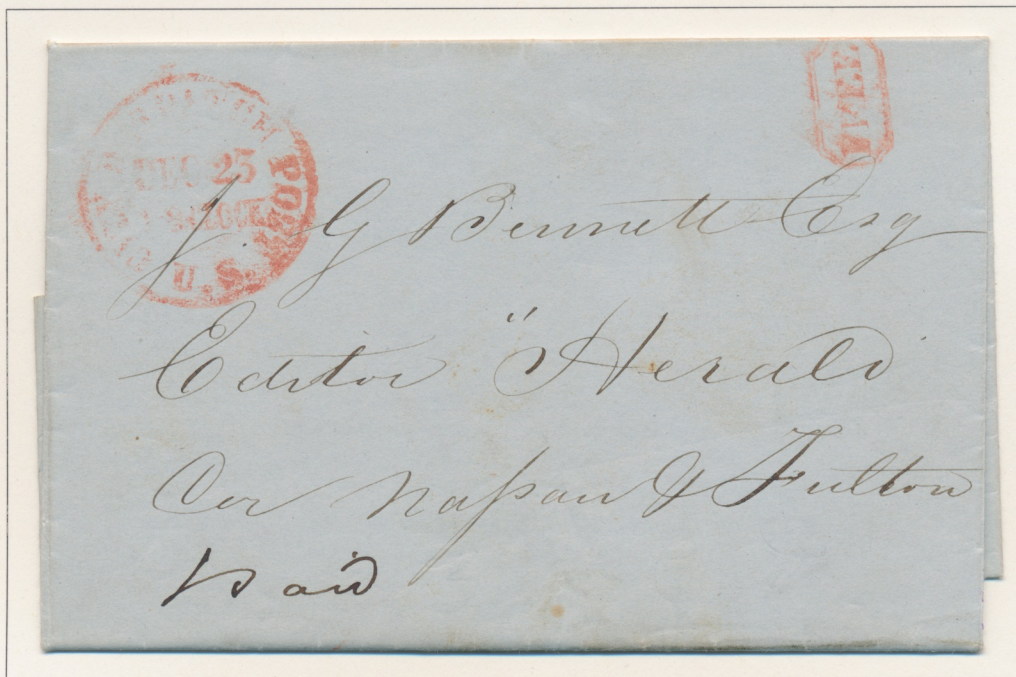 DEC 25
O'CLOCK
U.S. POST
FREE
J. G Bennett Esq
Editor "Herald
Cor Nassau & Fulton
Paid